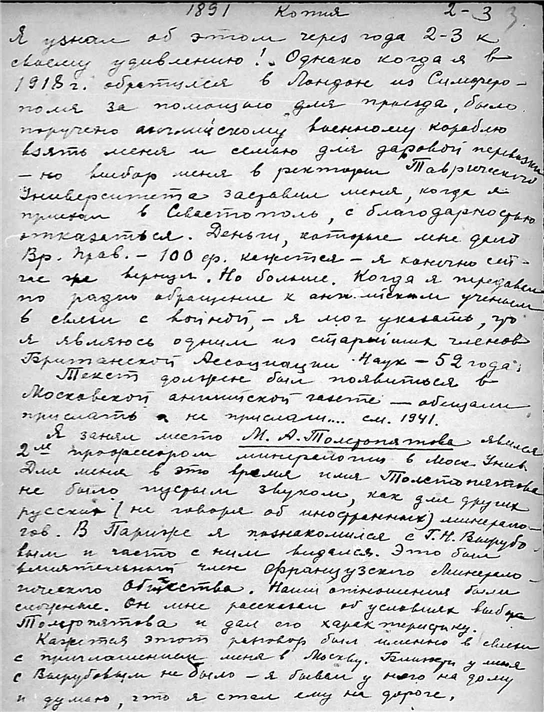 1891 Копия 2-3 3
Я узнал об этом через года 2-3 к
своему удивлению! Однако когда я в
1918 г. обратился в Лондон из Симферо-
поля за помощью для проезда, было
поручено английскому военному кораблю
взять меня и семью для даровой перевозки
— но выбор меня в ректоры Таврического
Университета заставил меня, когда я
приехал в Севастополь, с благодарностью
отказаться. Деньги, которые мне дало
Вр. Прав. — 100 ф. кажется — я конечно сей-
час же вернул. Но больше. Когда я передавал
по радио обращение к английским ученым
в связи с войной, — я мог указать, что
я являюсь одним из старейших членов
Британской Ассоциации Наук — 52 года;
Текст должен был появиться в
Московской английской газете — обещали
прислать и не прислали.... см. 1941.
Я занял место М. А. Толстопятова явился
2м профессором минералогии в Моск. Унив.
Для меня в это время имя Толстопятова
не было пустым звуком, как для других
русских (не говоря об иностранных) минерало-
гов. В Париже я познакомился с Г. Н. Вырубо-
вым и часто с ним видался. Это был
влиятельный член Французского Минерало-
гического Общества. Наши отношения были
сложные. Он мне рассказал об условиях выбора
Толстопятова и дал его характеристику.
Кажется этот разговор был именно в связи
с приглашением меня в Москву. Близости у меня
с Вырубовым не было — я бывал у него на дому
и думаю, что я стал ему на дороге.